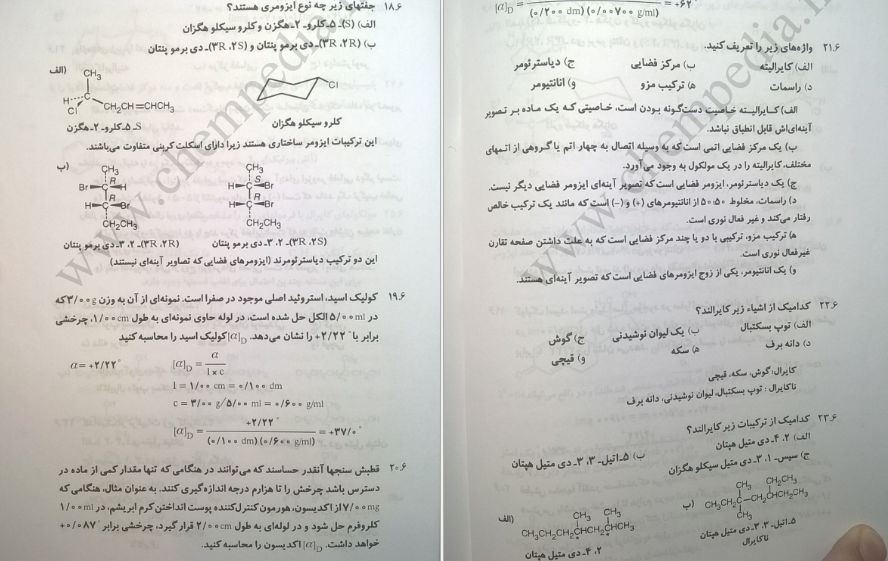 ۱۸.۶ جفتهای زیر چه نوع ایزومری هستند؟
الف) (S)ـ ۵ـ کلروـ ۲ـ هگزن و کلرو سیکلو هگزان
ب) (۲R، ۳R)ـ دی برمو پنتان و (۲S، ۳R)ـ دی برمو پنتان
الف)
CH₃
H
C
Cl
CH₂CH=CHCH₃
Cl
کلرو سیکلو هگزان
S ـ ۵ـ کلروـ ۲ـ هگزن
این ترکیبات ایزومر ساختاری هستند زیرا دارای اسکلت کربنی متفاوت می‌باشند.
ب)
CH₃
R
Br C H
R
H C Br
CH₂CH₃
CH₃
S
H C Br
R
H C Br
CH₂CH₃
(۲R، ۳R)ـ ۲، ۳ـ دی برمو پنتان
(۲S، ۳R)ـ ۲، ۳ـ دی برمو پنتان
این دو ترکیب دیاسترئومرند (ایزومرهای فضایی که تصاویر آینه‌ای نیستند)
۱۹.۶ کولیک اسید، استروئید اصلی موجود در صفرا است. نمونه‌ای از آن به وزن ۳/۰۰g که
در ۵/۰۰ml الکل حل شده است، در لوله حاوی نمونه‌ای به طول ۱/۰۰cm، چرخشی
برابر با °۲/۲۲+ را نشان می‌دهد. [α]D کولیک اسید را محاسبه کنید
α = +۲/۲۲°
[α]D = α / l × c
l = ۱/۰۰ cm = ۰/۱۰۰ dm
c = ۳/۰۰ g/۵/۰۰ ml = ۰/۶۰۰ g/ml
[α]D = +۲/۲۲° / (۰/۱۰۰ dm) (۰/۶۰۰ g/ml) = +۳۷/۰°
۲۰.۶ قطبش سنجها آنقدر حساسند که می‌توانند در هنگامی که تنها مقدار کمی از ماده در
دسترس باشد چرخش را تا هزارم درجه اندازه‌گیری کنند. به عنوان مثال، هنگامی که
۷/۰۰mg از اکدیسون، هورمون کنترل‌کننده پوست انداختن کرم ابریشم، در ۱/۰۰ml
کلروفرم حل شود و در لوله‌ای به طول ۲/۰۰cm قرار گیرد، چرخشی برابر °۰/۰۸۷+
خواهد داشت. [α]D اکدیسون را محاسبه کنید.
[α]D = (۰/۲۰۰ dm) (۰/۰۰۷۰۰ g/ml) = +۶۲°
۲۱.۶ واژه‌های زیر را تعریف کنید.
الف) کایرالیته ب) مرکز فضایی ج) دیاسترئومر
د) راسمات ه) ترکیب مزو و) انانتیومر
الف) کایرالیته خاصیت دست‌گونه بودن است، خاصیتی که یک ماده بر تصویر
آینه‌ای‌اش قابل انطباق نباشد.
ب) یک مرکز فضایی اتمی است که به وسیله اتصال به چهار اتم یا گروهی از اتمهای
مختلف، کایرالیته را در یک مولکول به وجود می‌آورد.
ج) یک دیاسترئومر، ایزومر فضایی است که تصویر آینه‌ای ایزومر فضایی دیگر نیست.
د) راسمات، مخلوط ۵۰:۵۰ از انانتیومرهای (+) و (−) است که مانند یک ترکیب خالص
رفتار می‌کند و غیر فعال نوری است.
ه) ترکیب مزو، ترکیبی با دو یا چند مرکز فضایی است که به علت داشتن صفحه تقارن
غیرفعال نوری است.
و) یک انانتیومر، یکی از زوج ایزومرهای فضایی است که تصویر آینه‌ای هستند.
۲۲.۶ کدامیک از اشیاء زیر کایرالند؟
الف) توپ بسکتبال ب) یک لیوان نوشیدنی ج) گوش
د) دانه برف ه) سکه و) قیچی
کایرال: گوش، سکه، قیچی
ناکایرال : توپ بسکتبال، لیوان نوشیدنی، دانه برف
۲۳.۶ کدامیک از ترکیبات زیر کایرالند؟
الف) ۲، ۴ـ دی متیل هپتان ب) ۵ـ اتیل ـ ۳، ۳ـ دی متیل هپتان
ج) سیس ـ ۱، ۳ـ دی متیل سیکلو هگزان
الف)
CH₃ CH₃
CH₃CH₂CH₂CHCH₂CHCH₃
*
۲، ۴ـ دی متیل هپتان
ب)
CH₃ CH₂CH₃
CH₃CH₂C—CH₂CHCH₂CH₃
CH₃
۵ـ اتیل ـ ۳، ۳ـ دی متیل هپتان
ناکایرال
www.chempedia.ir